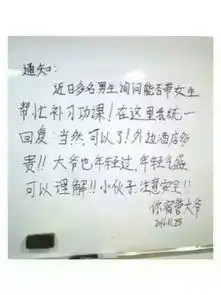 通知:
近日多名男生询问能否带女生
帮忙补习功课!在这里统一
回复:当然可以了!外边酒店多
贵!!大爷也年轻过,年轻气盛
可以理解!!小伙子注意安全!!
你宿管大爷